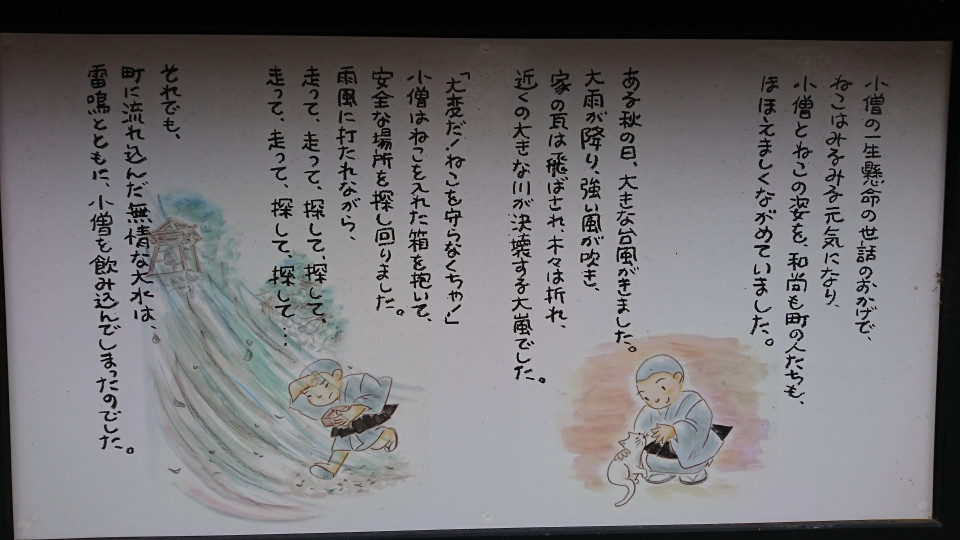 小僧の一生懸命の世話のおかげで、
ねこはみるみる元気になり、
小僧とねこの姿を、和尚も町の人たちも、
ほほえましくながめていました。
ある秋の日、大きな台風がきました。
大雨が降り、強い風が吹き、
家の瓦は飛ばされ、木々は折れ、
近くの大きな川が決壊する大嵐でした。
「大変だ!ねこを守らなくちゃ!」
小僧はねこを入れた箱を抱いて、
安全な場所を探し回りました。
雨風に打たれながら、
走って、走って、探して、探して、
走って、走って、探して、探して…
それでも、
町に流れ込んだ無情な大水は、
雷鳴とともに、小僧を飲み込んでしまったのでした。